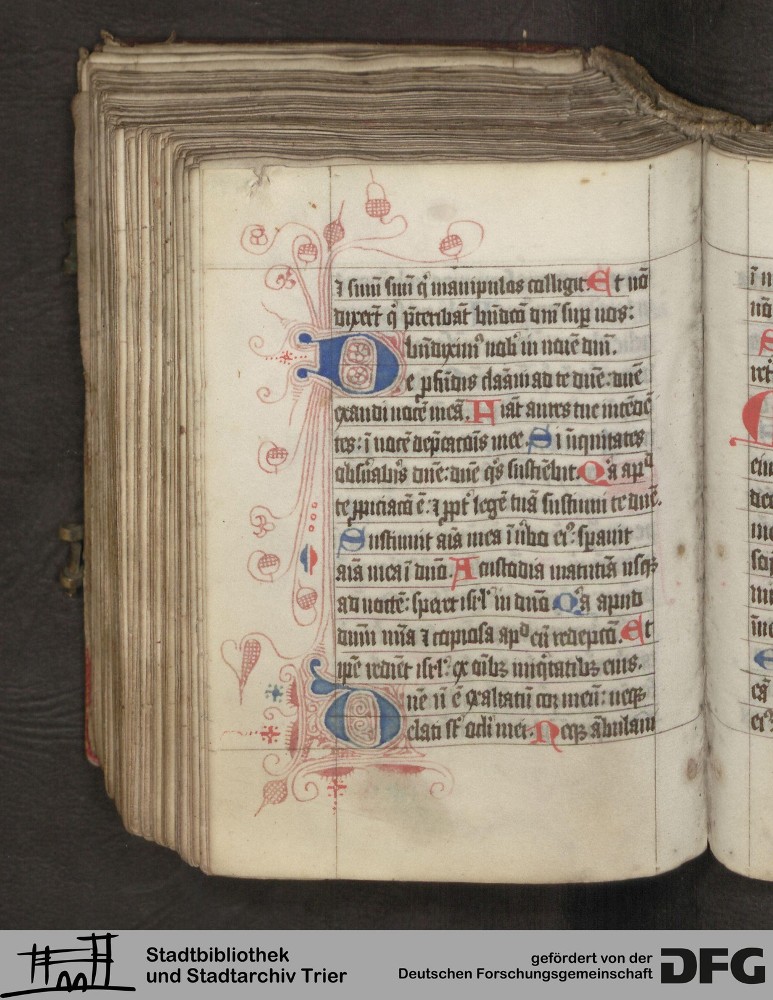 ⁊ sinū suū qͥ manipulos colligit. Et nō
dixerūt qͥ p̄teribāt bn̄dcō dn̄i sup̱ uos:
bn̄diximꝰ uobꝭ in noīe dn̄i.
De ꝓfūdis clamāui ad te dn̄e: dn̄e
exaudi uocē meā. Fiāt aures tue intēdē
tes: ī uocē dep̄catiōīs mee. Si īiquitates
obẜuabꝭis dn̄e: dn̄e qͥs sustiēbit. Qͥa apᵈ
te ꝓpiciacō ē: ⁊ ꝓpt̾ legē tuā sustinui te dn̄e.
Sustinuit aīa mea ī ūbo eiꝰ: sꝑauit
aīa mea ī dn̄o. A custodia matutīa usqꝫ
ad noctē: speret isrl̾ in dn̄o. Qͥa apud
dn̄m mīa ⁊ copiosa apᵈ eū redēpcō. Et
ip̄e redīet isrl̾: ex oībꝫ iniqͥtatibꝫ eius.
Dn̄e n̄ ē exaltatū cor meū: neqꝫ
elati st̄ oc̄li mei. Neqꝫ ābulaui
Stadtbibliothek
und Stadtarchiv Trier
gefördert von der
Deutschen Forschungsgemeinschaft
DFG